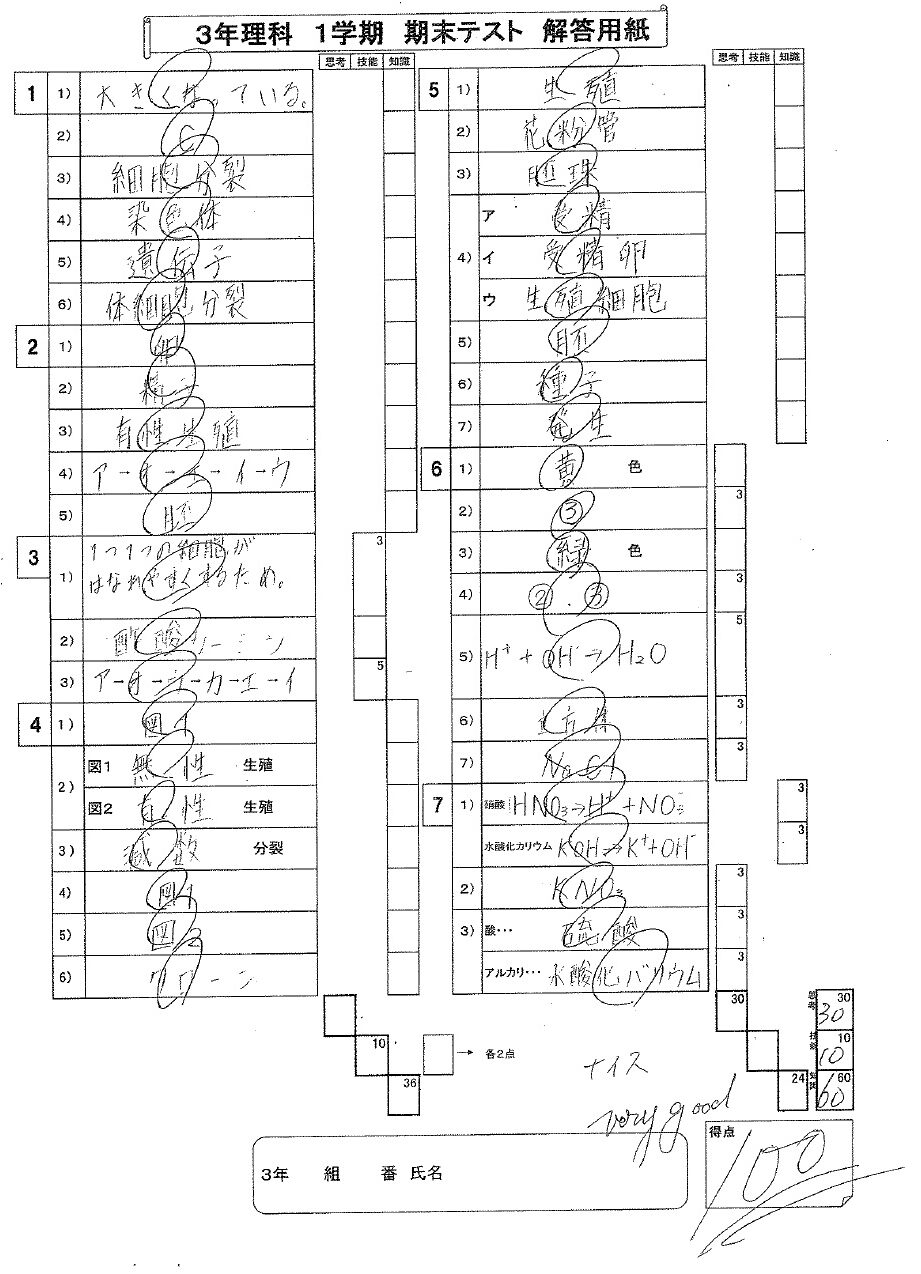 3年理科 1学期 期末テスト 解答用紙
思考 技能 知識
1
1) 大きくなっている。
2) C
3) 細胞分裂
4) 染色体
5) 遺伝子
6) 体細胞分裂
2
1) 卵
2) 精子
3) 有性生殖
4) ア→オ→エ→イ→ウ
5) 胚
3
1) 1つ1つの細胞が
はなれやすくするため。
3
2) 酢酸オルセイン
3) ア→オ→ウ→カ→エ→イ
5
4
1) 図1
2) 図1 無性 生殖
図2 有性 生殖
3) 減数 分裂
4) 図1
5) 図2
6) クローン
10
36
→ 各2点
思考 技能 知識
5
1) 生殖
2) 花粉管
3) 胚珠
4) ア 受精
イ 受精卵
ウ 生殖細胞
5) 胚
6) 種子
7) 発生
6
1) 黄 色
2) ③ 3
3) 緑 色
4) ②.③ 3
5) H⁺ + OH⁻→H₂O 5
6) 立方体 3
7) NaCl 3
7
1) 硝酸 HNO₃→H⁺+NO₃⁻ 3
水酸化カリウム KOH→K⁺+OH⁻ 3
2) KNO₃ 3
3) 酸… 硫酸 3
アルカリ… 水酸化バリウム 3
30
24
思考 30 30
技能 10 10
知識 60 60
ナイス
very good
3年 組 番 氏名
得点
100